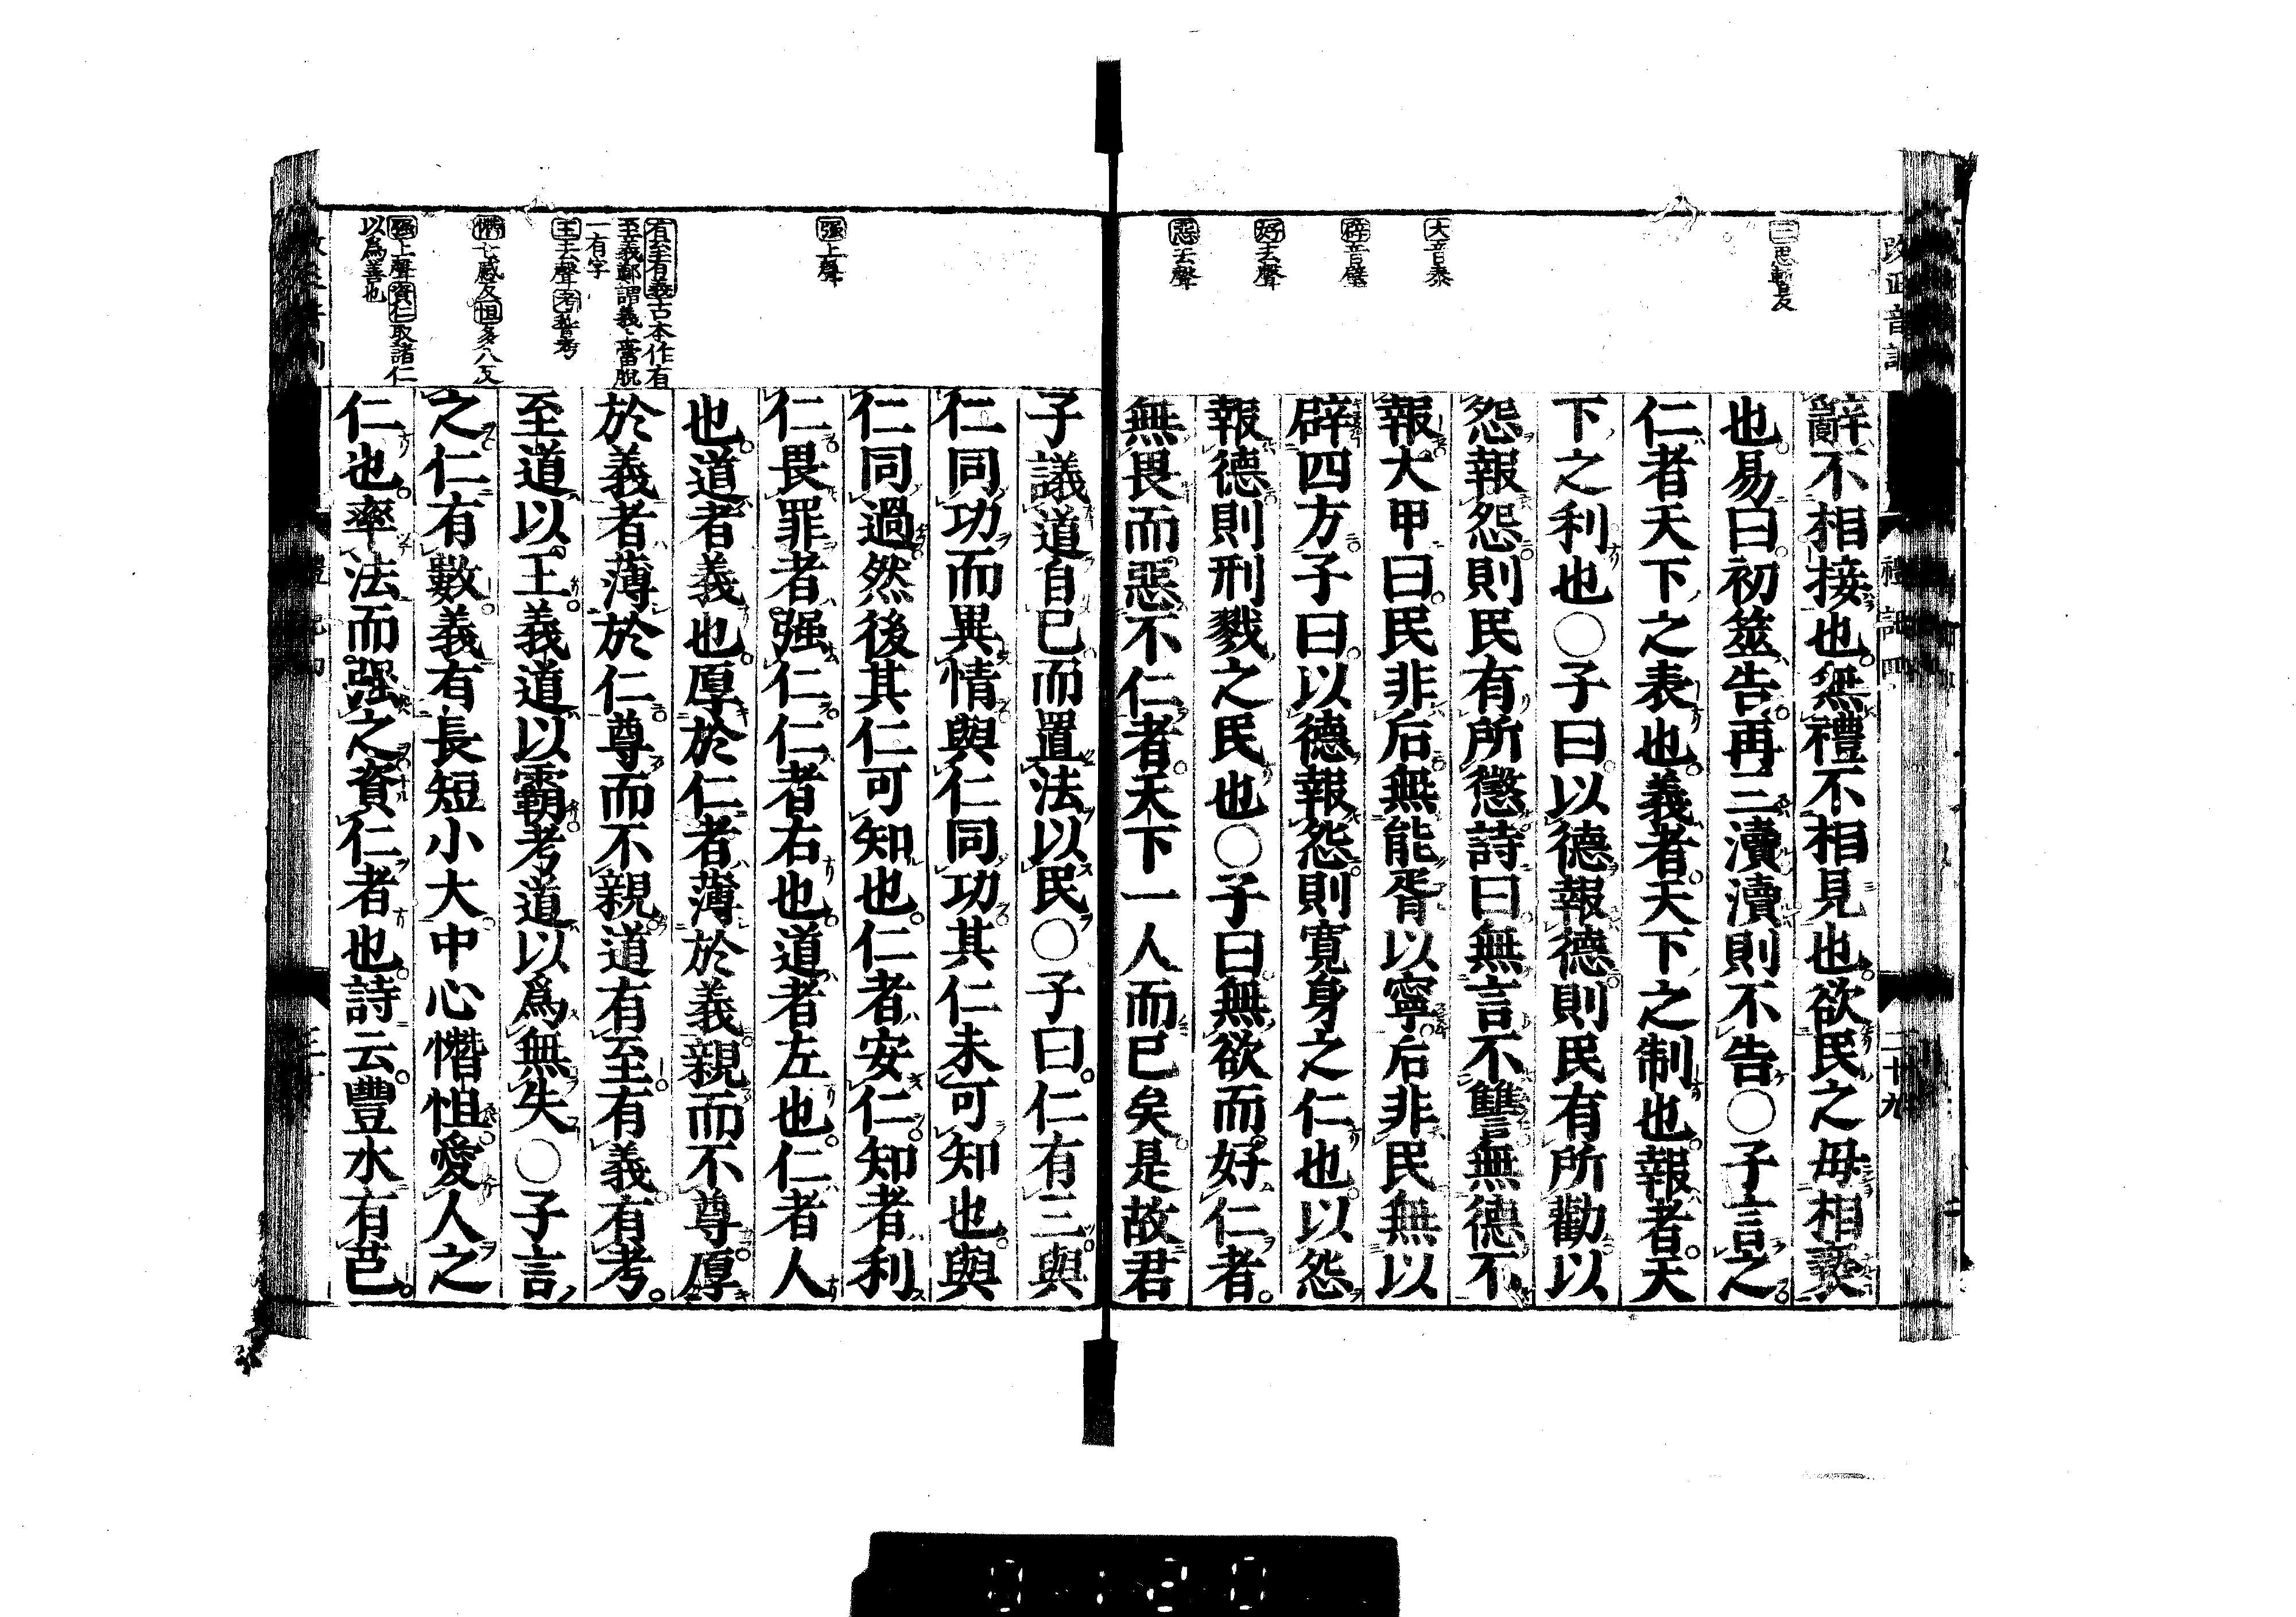 三思暫反
大音泰
辟音璧
好去聲
惡去聲
辭不相接也無禮不相見也欲民之毋相褻
也易曰初筮告再三瀆瀆則不告〇子言之
仁者天下之表也義者天下之制也報者天
下之利也〇子曰以德報德則民有所勸以
怨報怨則民有所懲詩曰無言不讐無德不
報大甲曰民非后無能胥以寧后非民無以
辟四方子曰以德報怨則寬身之仁也以怨
報德則刑戮之民也〇子曰無欲而好仁者
無畏而惡不仁者天下一人而已矣是故君
强上聲
有至有義古本作有
至義鄭謂義上當脫
一有字
王去聲
憯七感反怛多八反
强上聲資仁取諸仁
以爲善也
子議道自己而置法以民〇子曰仁有三與
仁同功而異情與仁同功其仁未可知也與
仁同過然後其仁可知也仁者安仁知者利
仁畏罪者强仁仁者右也道者左也仁者人
也道者義也厚於仁者薄於義親而不尊厚
於義者薄於仁尊而不親道有至有義有考
至道以王義道以霸考道以爲無失〇子言
之仁有數義有長短小大中心憯怛愛人之
仁也率法而强之資仁者也詩云豐水有芑
禮記四
二十九